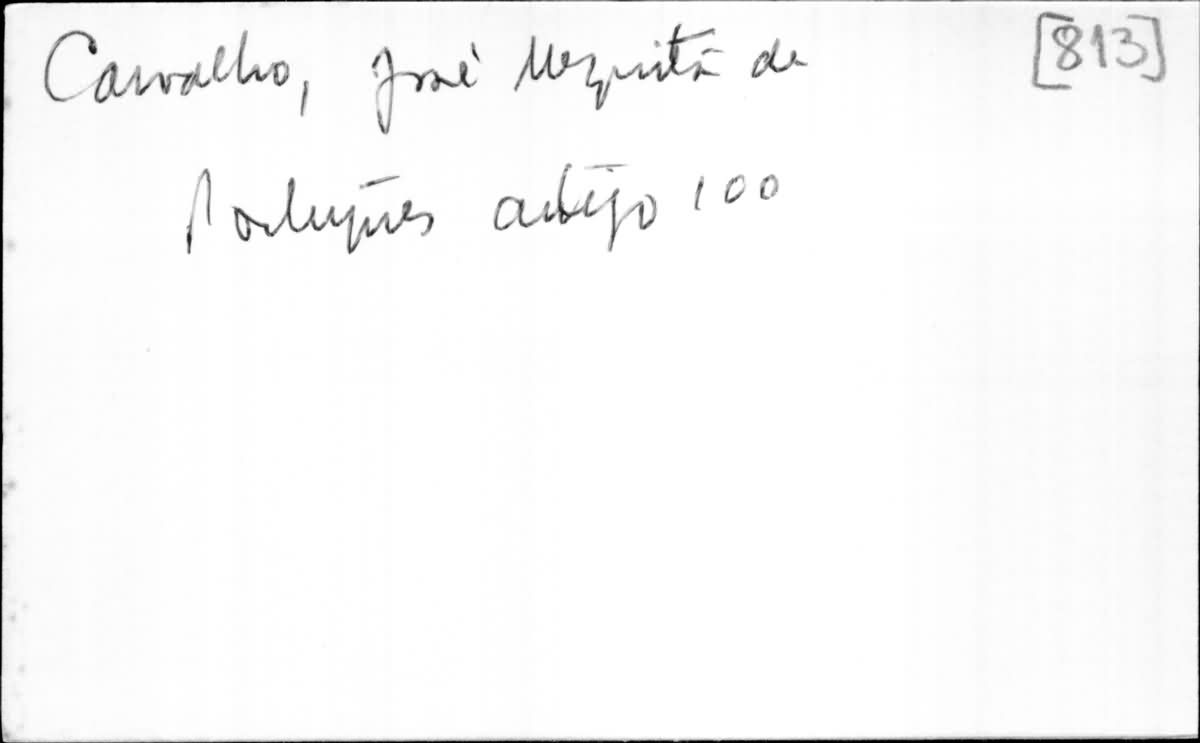 Carvalho, José Mesquita de [813]
Português antigo 100